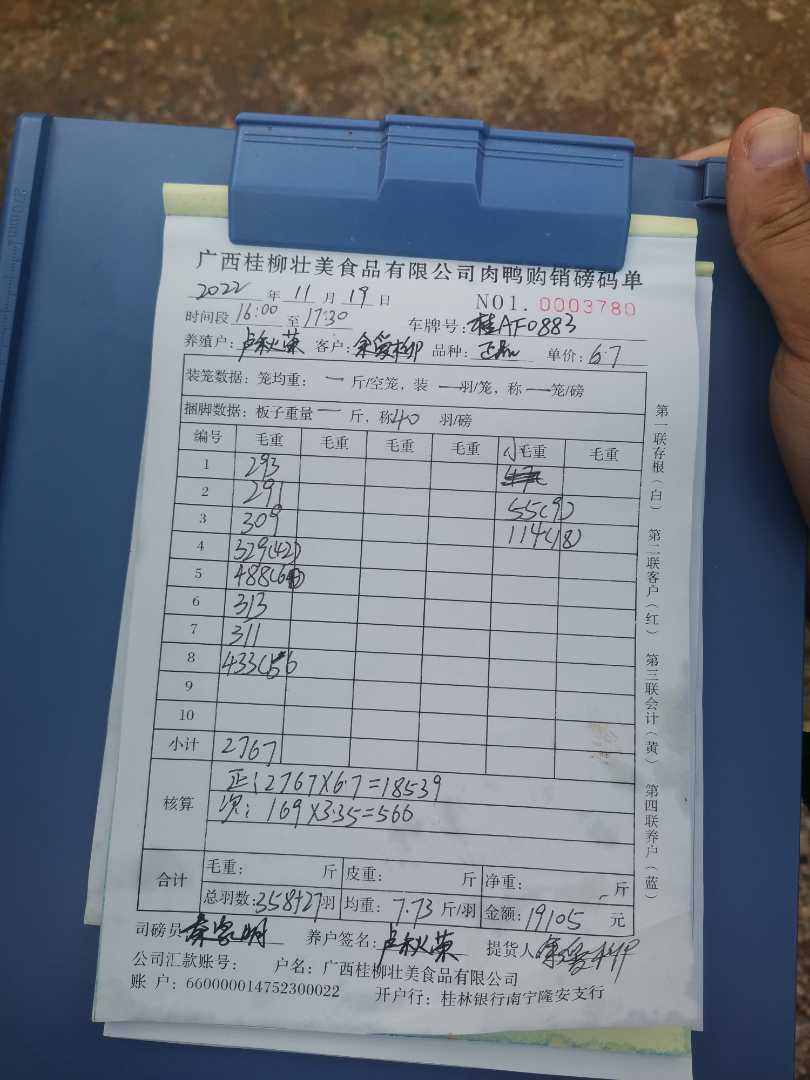 广西桂柳壮美食品有限公司肉鸭购销磅码单
2022 年 11 月 19 日 NO1. 0003780
时间段 16:00 至 17:30 车牌号: 桂AF0883
养殖户: 卢秋荣 客户: 余爱柳 品种: 正品 单价: 6.7
装笼数据: 笼均重: — 斤/空笼, 装 — 羽/笼, 称 — 笼/磅
捆脚数据: 板子重量 — 斤, 称 40 羽/磅
编号 毛重 毛重 毛重 毛重 小毛重 毛重
1 293
2 291 55(9)
3 309 114(18)
4 329(42)
5 488(6
6 313
7 311
8 433(56
9
10
小计 2767
核算 正:2767X6.7=18539
次: 169X3.35=566
合计 毛重: 斤 皮重: 斤 净重: 斤
总羽数: 358+27 羽 均重: 7.73 斤/羽 金额: 19105 元
司磅员 秦家明 养户签名: 卢秋荣 提货人 余爱柳
公司汇款账号: 户名: 广西桂柳壮美食品有限公司
账 户: 660000014752300022 开户行: 桂林银行南宁隆安支行
第一联存根(白) 第二联客户(红) 第三联会计(黄) 第四联养户(蓝)